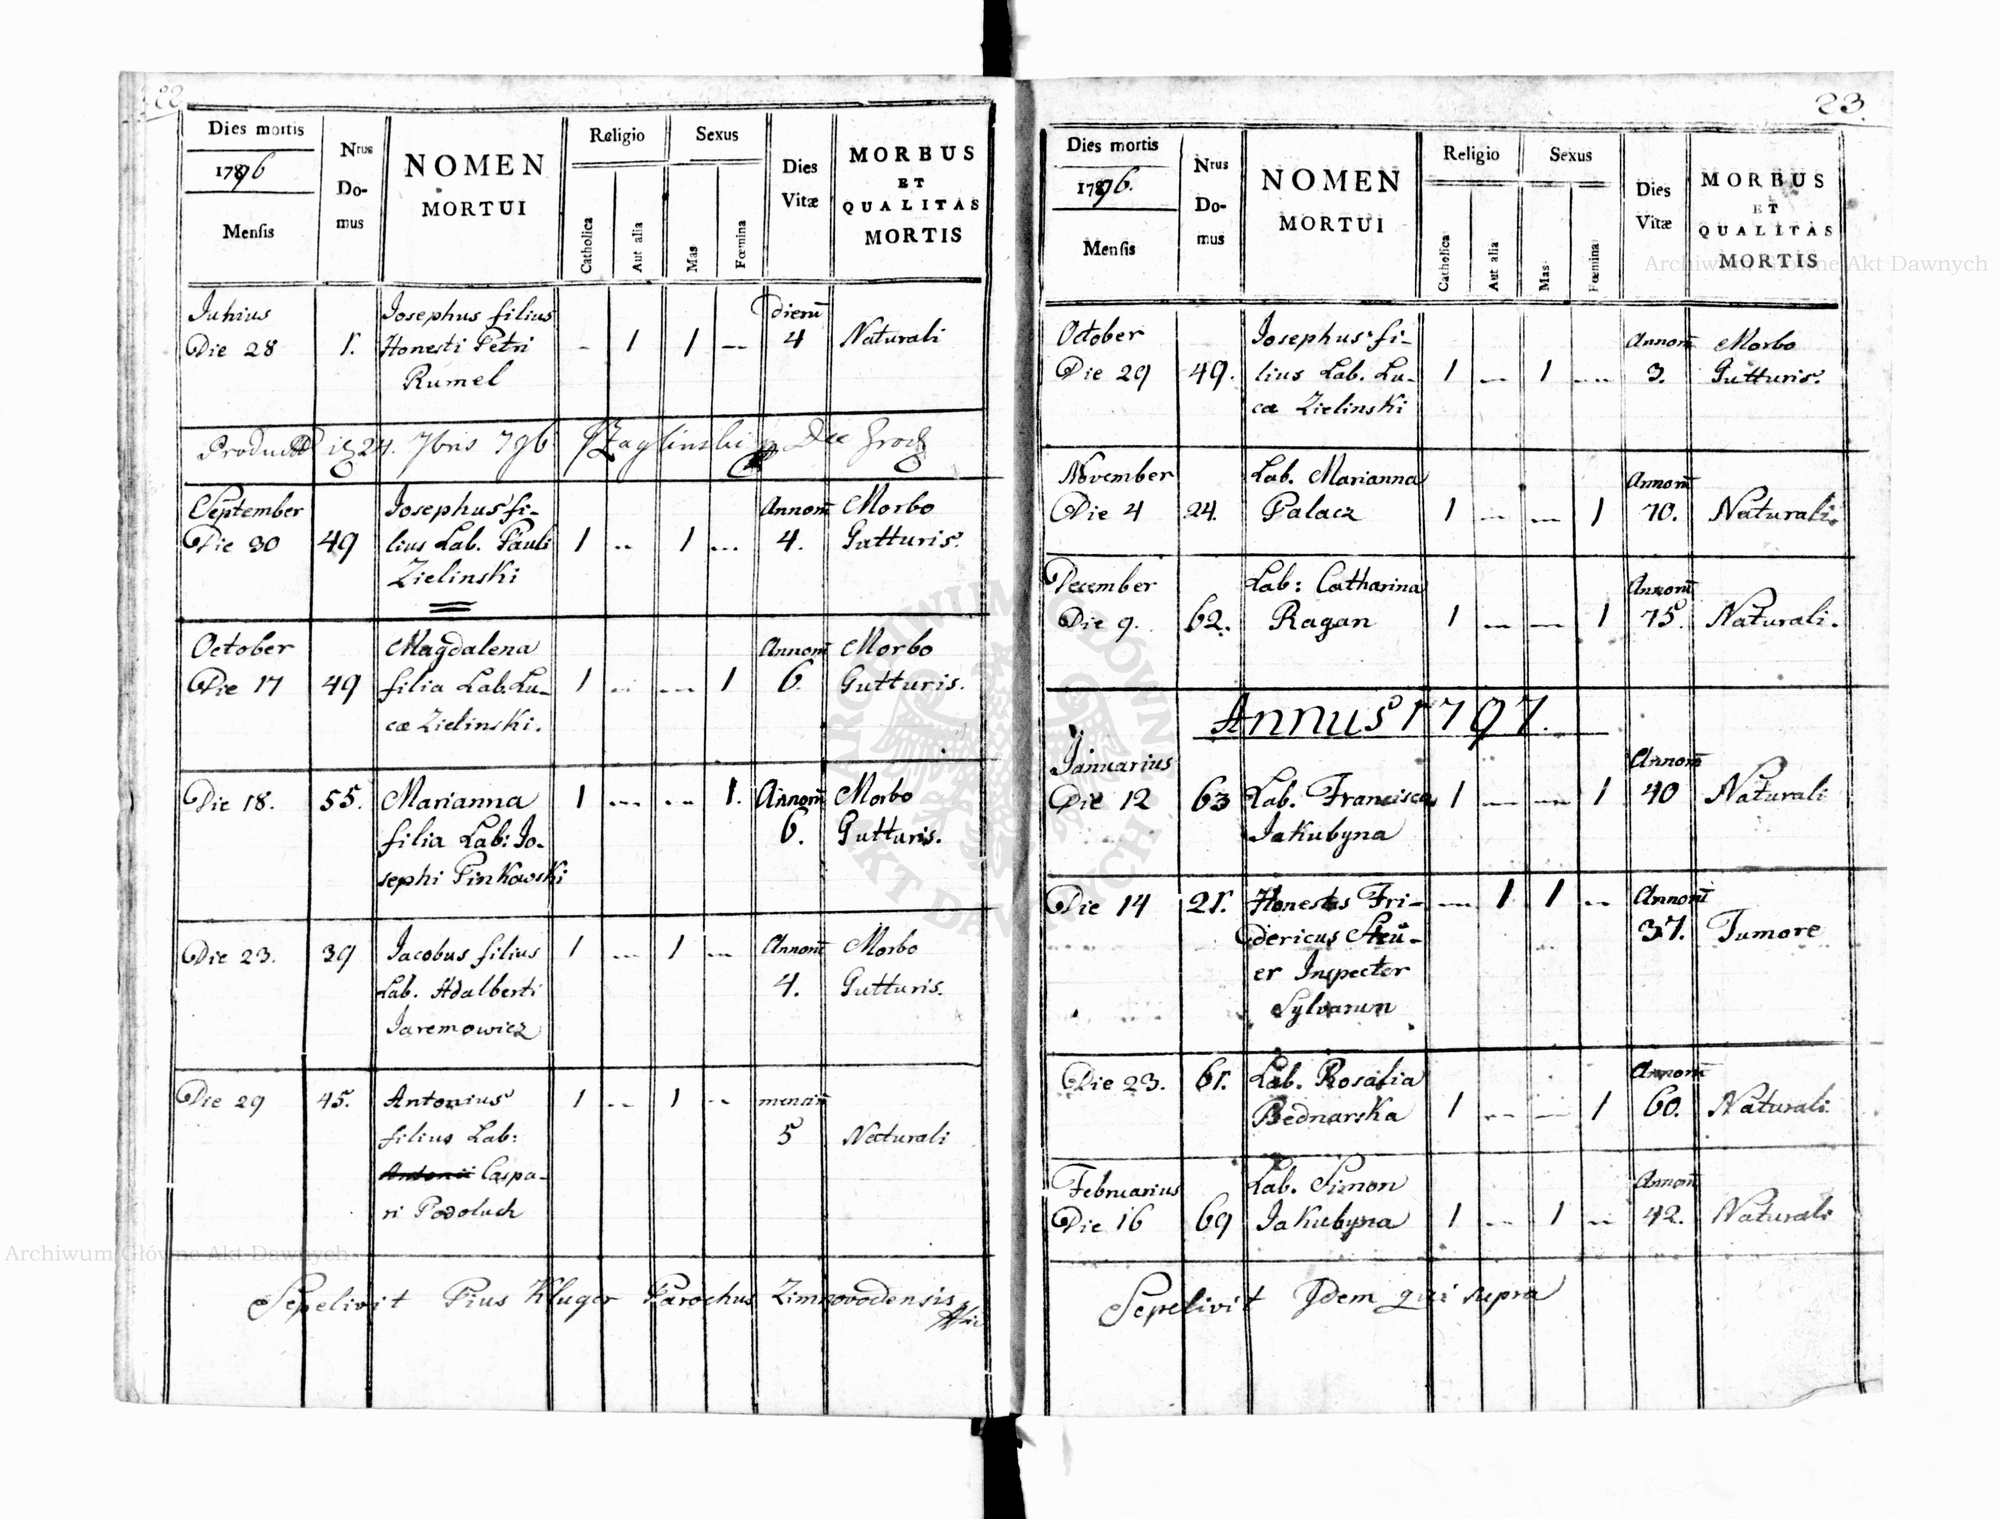 22
Dies mortis
1796
Mensis
Nrus Do-
mus
NOMEN
MORTUI
Religio
Catholica
Aut alia
Sexus
Mas
Fœmina
Dies
Vitæ
MORBUS
ET
QUALITAS
MORTIS
Junius
Die 28 1. Josephus filius
Honesti Petri
Rumel
- 1 1 -- Dierū 4 Naturali
Product 24. 7bris 796
September
Die 30 49 Josephus fi-
lius Lab. Pauli
Zielinski
1 -- 1 -- Annorū 4. Morbo
Gutturis.
October
Die 17 49 Magdalena
filia Lab. Lu-
cæ Zielinski.
1 -- -- 1 Annorū 6. Morbo
Gutturis.
Die 18. 55. Marianna
filia Lab: Jo-
sephi Pinkowski
1 -- -- 1. Annorū 6. Morbo
Gutturis.
Die 23. 39 Jacobus filius
Lab. Adalberti
Jaremowicz
1 -- 1 -- Annorū 4. Morbo
Gutturis.
Die 29 45. Antonius
filius Lab:
Antonii Caspa-
ri Podoluch
1 -- 1 -- mensiū 5 Naturali
Sepelivit Pius Kluger Parochus Zimnovodensis
23.
Dies mortis
1796.
Mensis
Nrus
Do-
mus
NOMEN
MORTUI
Religio
Catholica
Aut alia
Sexus
Mas
Fœmina
Dies
Vitæ
MORBUS
ET
QUALITAS
MORTIS
October
Die 29 49. Josephus fi-
lius Lab. Lu-
cæ Zielinski
1 -- 1 -- Annorū 3. Morbo
Gutturis.
November
Die 4 24. Lab. Marianna
Palacz
1 -- -- 1 Annorū 70. Naturali.
December
Die 9. 62. Lab: Catharina
Ragan
1 -- -- 1 Annorū 75. Naturali.
Annus 1797.
Januarius
Die 12 63 Lab. Francisca
Jakubyna
1 -- -- 1 Annorū 40 Naturali
Die 14 21. Honestus Fri-
dericus Steü-
er Inspecter
Sylvarum
-- 1 1 -- Annorū 37. Tumore
Die 23. 61. Lab. Rosalia
Bednarska
1 -- -- 1 Annorū 60. Naturali
Februarius
Die 16 69 Lab. Simon
Jakubyna
1 -- 1 -- Annorū 42. Naturali
Sepelivit Idem qui supra
Archiwum Główne Akt Dawnych
Archiwum Główne Akt Dawnych
ARCHIWUM GŁÓWNE AKT DAWNYCH